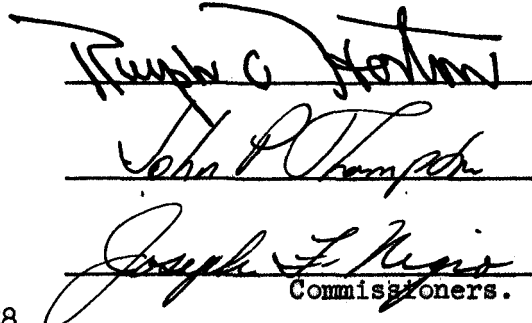 Ralph C Horton
John P Thompson
Joseph F Nigro
Commissioners.
8